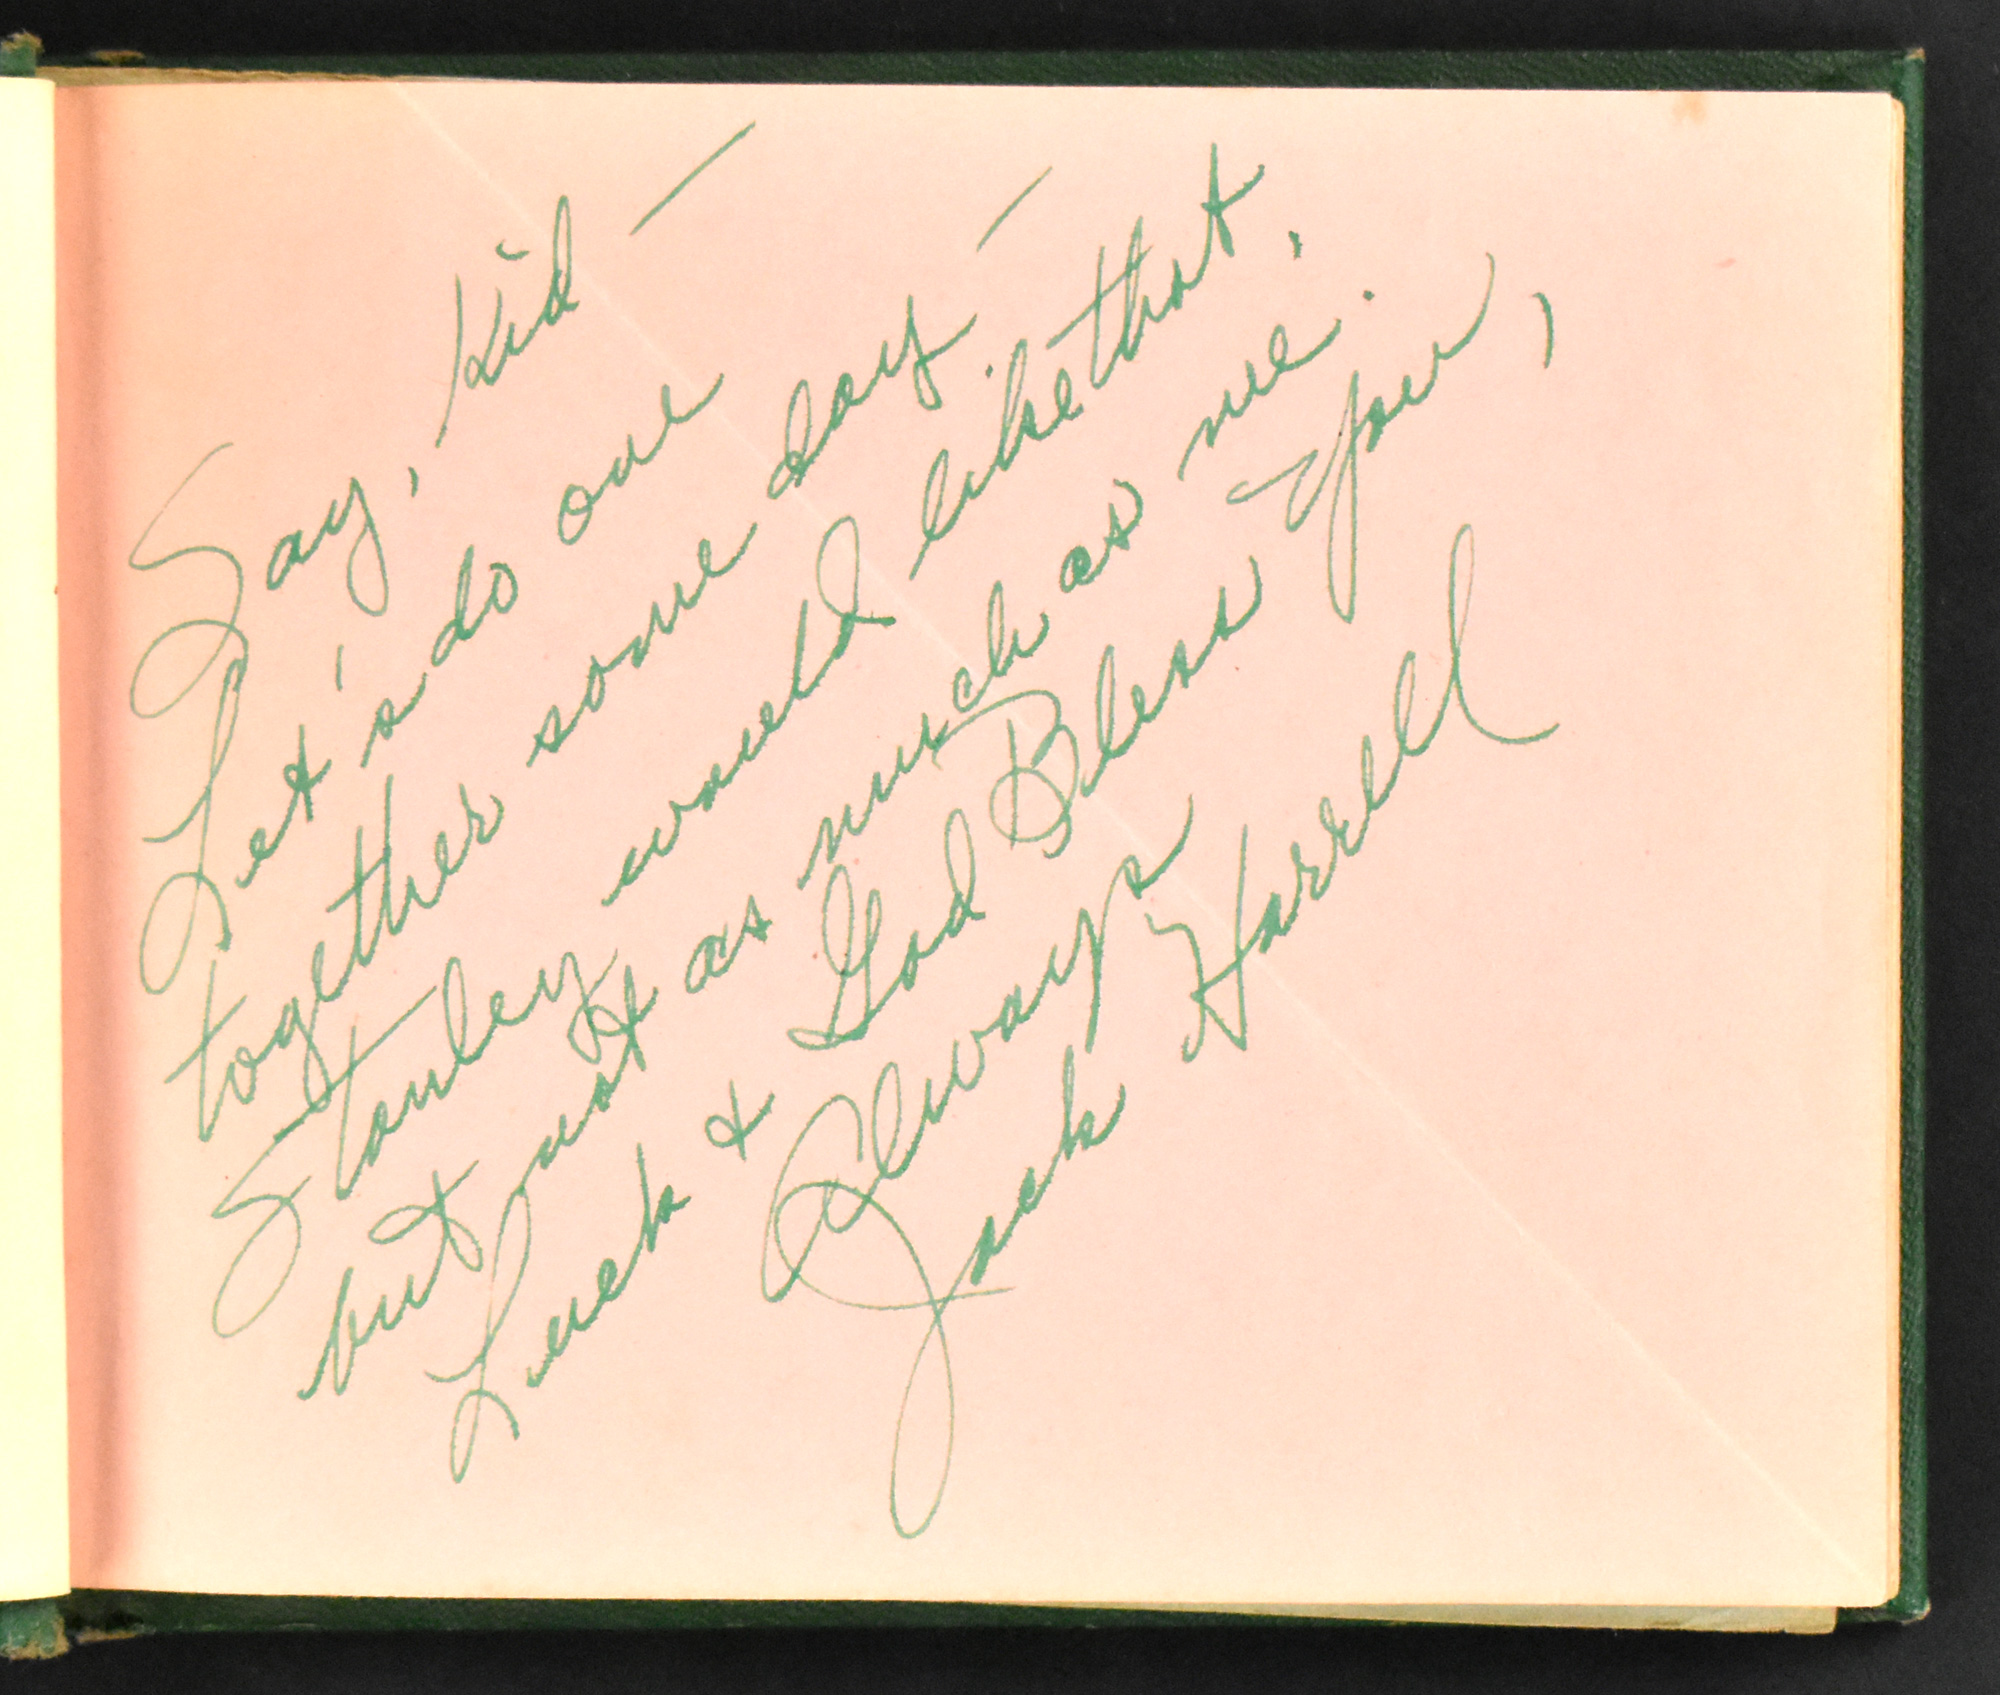 Say, Kid —
Let's do one
together some day. —
Stanley would like that,
but just as much as me.
Luck & God Bless You,
Always
Jack Harrell